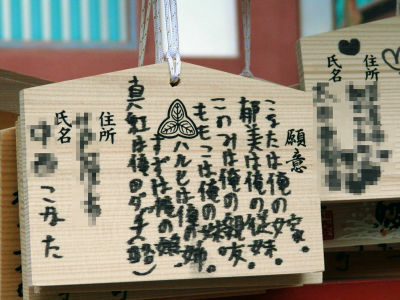 願意
こなたは俺の嫁。
郁美は俺の従妹。
このみは俺の親友。
ももこは俺の妹。
ハルヒは俺の姉。
すずは俺の娘
真紅は俺のダチ
住所
氏名
こなた
住所
氏名